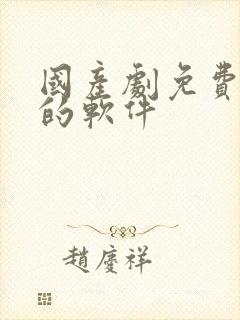 國產劇免費
的軟件
趙慶祥